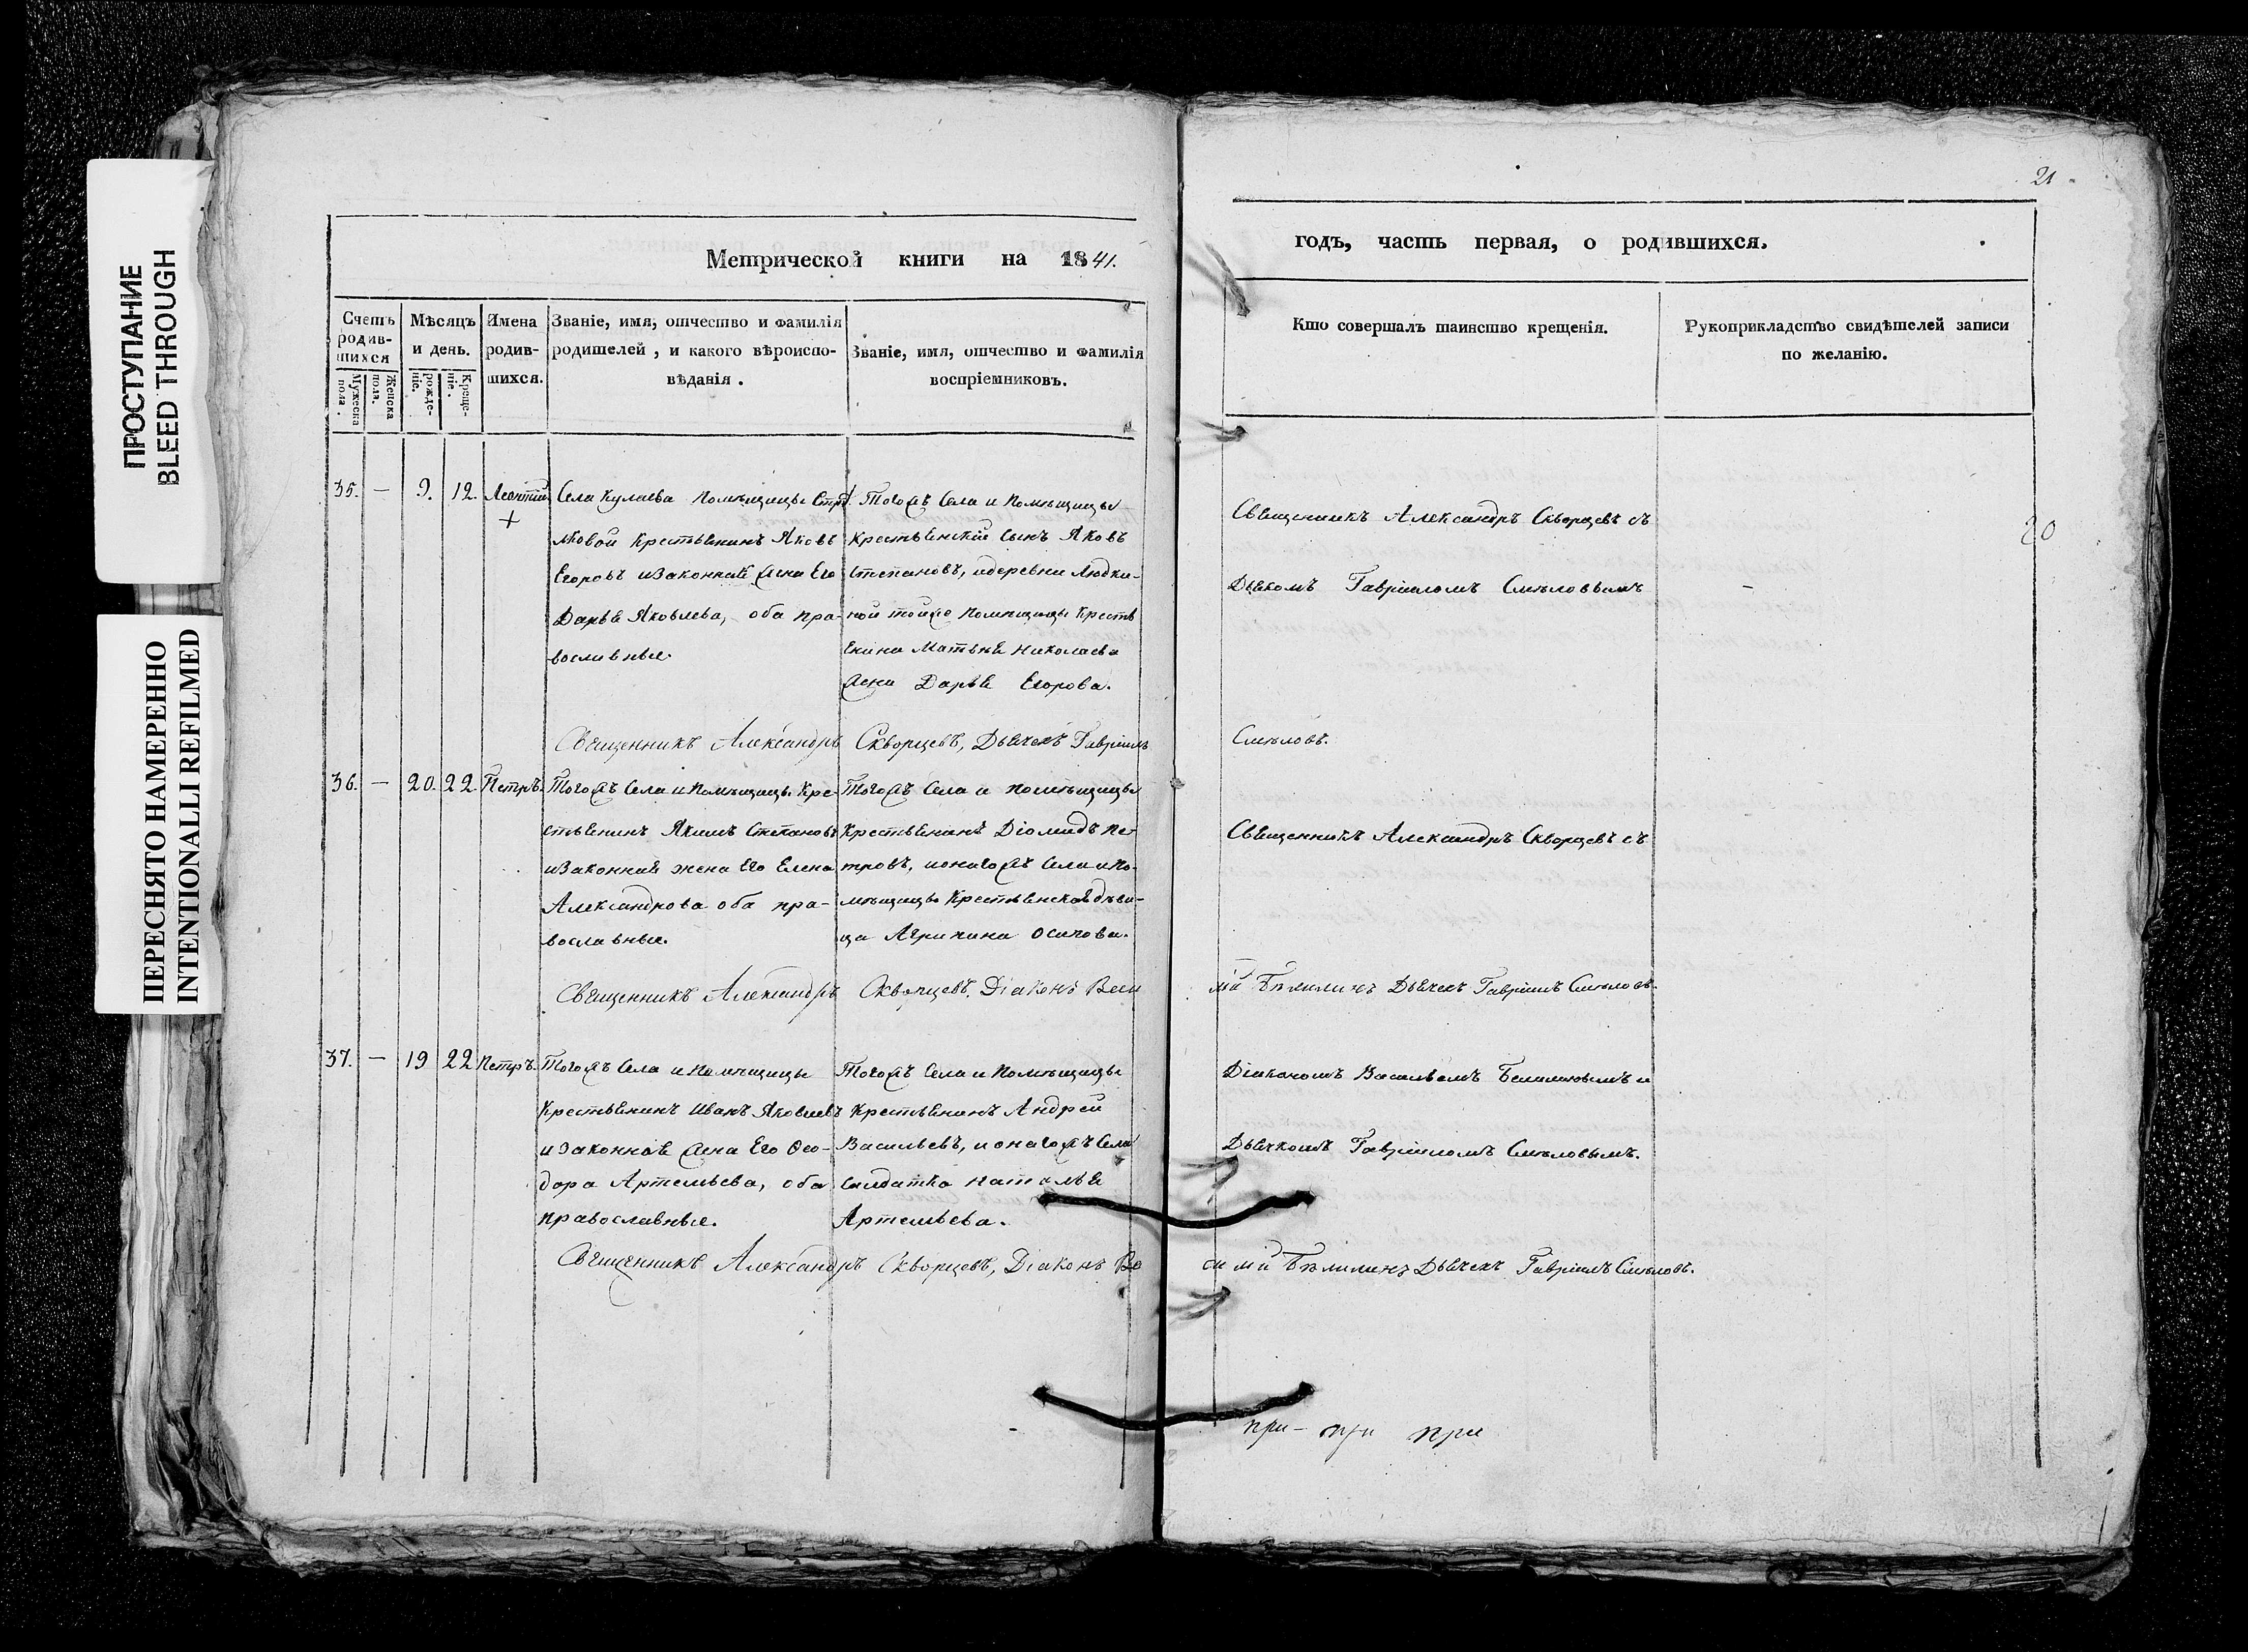 ПРОСТУПАНИЕ
BLEED THROUGH
ПЕРЕСНЯТО НАМЕРЕННО
INTENTIONALLI REFILMED
21
20
Метрической книги на 1841.
годъ, часть первая, о родившихся.
Счетъ родив-шихся
Мужеска пола.
Женска пола.
Мѣсяцъ и день.
рожде-ніе.
Креще-ніе.
Имена родив-шихся.
Званіе, имя, отчество и фамилія
родителей, и какого вѣроиспо-
вѣданія.
Званіе, имя, отчество и фамилія
воспріемниковъ.
Кто совершалъ таинство крещенія.
Рукоприкладство свидѣтелей записи
по желанію.
35. — 9. 12. Леонтий
Села Кулаева Помѣщицы
Крестьянинъ Яковъ
Егоровъ изаконная жена Его
Дарья Яковлева, оба пра-
вославные.
Тогожъ Села и Помѣщицы
Крестьянский Сынъ Яковъ
Степановъ, идеревни
ной тойже Помѣщицы Кресть
янина Матвѣя Николаева
жена Дарья Егорова.
Священникъ Александръ Скворцевъ съ
Дьячкомъ Гавріиломъ Смѣловымъ
Священникъ Александръ Скворцевъ, Дьячекъ Гавріилъ Смѣловъ.
36. — 20. 22. Петръ.
Тогожъ Села и Помѣщицы Кре-
стьянинъ Якимъ Степановъ
изаконная жена Его Елена
Александрова оба пра-
вославные.
Тогожъ Села и помѣщицы
Крестьянинъ Діомидъ Пе-
тровъ, ионагожъ Села и По-
мѣщицы Крестьянская дѣви-
ца Агрипина Осипова.
Священникъ Александръ Скворцевъ съ
Священникъ Александръ Скворцевъ, Діаконъ Васи
лій Бѣлилинъ Дьячекъ Гавріилъ Смѣловъ.
37. — 19 22 Петръ.
Тогожъ Села и Помѣщицы
Крестьянинъ Иванъ Яковлевъ
изаконная жена Его Ѳео-
дора Артемьева, оба
православные.
Тогожъ Села и Помѣщицы
Крестьянинъ Андрей
Васильевъ, ионагожъ Села
Салдатка Наталья
Артемьева.
Діакономъ Васильемъ Белилиновымъ и
Дьячкомъ Гавріиломъ Смѣловымъ.
Священникъ Александръ Скворцевъ, Діаконъ Ва
силій Бѣлилинъ Дьячекъ Гавріилъ Смѣловъ.
при- при при